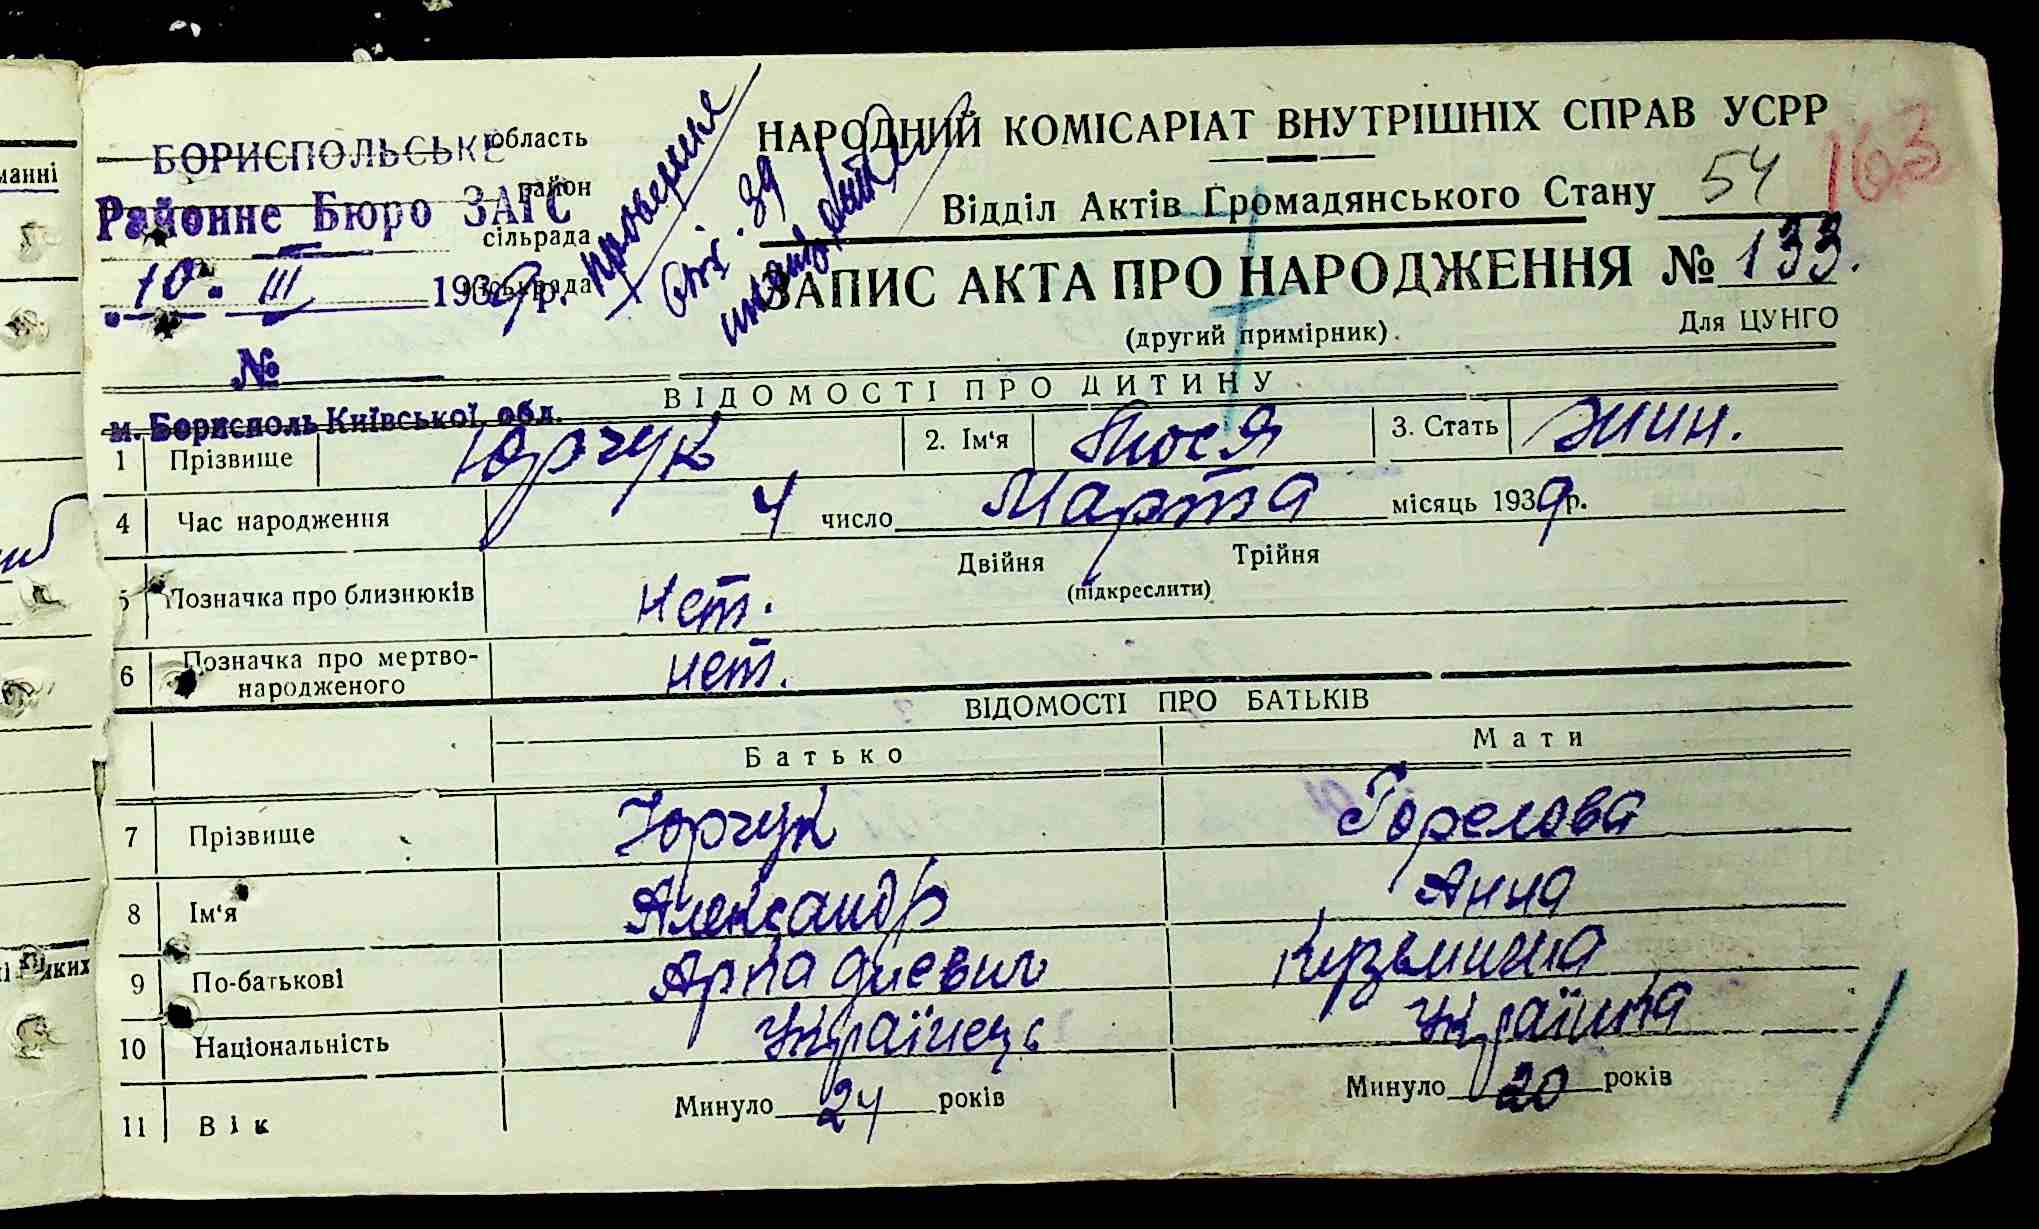 БОРИСПОЛЬСЬКЕ область
Районне Бюро ЗАГС район
сільрада
10 III 1939 р. міськрада
№
м. Борисполь Київської обл.
НАРОДНИЙ КОМІСАРІАТ ВНУТРІШНІХ СПРАВ УСРР
163
Відділ Актів Громадянського Стану 54
ЗАПИС АКТА ПРО НАРОДЖЕННЯ № 133.
(другий примірник). Для ЦУНГО
ВІДОМОСТІ ПРО ДИТИНУ
1 Прізвище Юрчук 2. Ім'я Тося 3. Стать жин.
4 Час народження 4 число Марта місяць 1939 р.
Двійня Трійня
5 Позначка про близнюків нет. (підкреслити)
6 Позначка про мертво-
народженого нет.
ВІДОМОСТІ ПРО БАТЬКІВ
Батько Мати
7 Прізвище Юрчук Горелова
8 Ім'я Александр Анна
9 По-батькові Аркадиевич Кузьминна
10 Національність Українець Українка
11 Вік Минуло 24 років Минуло 20 років